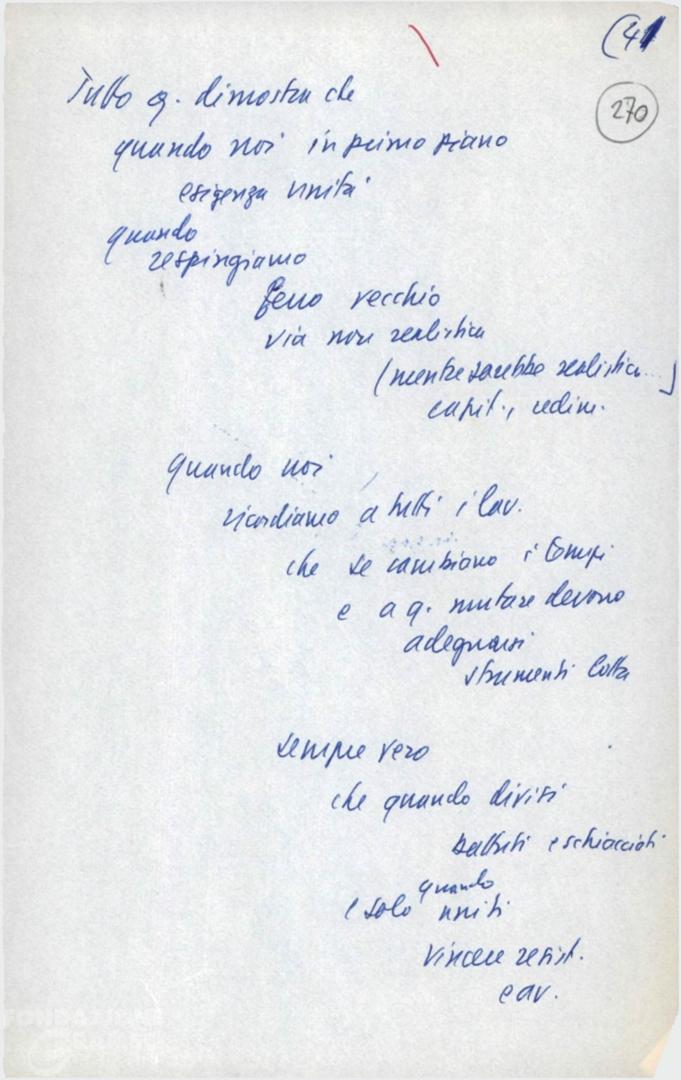 (41
270
Tutto q. dimostra che
quando noi in primo piano
esigenza unità
quando
respingiamo
ferro vecchio
via non realistica
(mentre sarebbe realistica...)
capit.,
quando noi
ricordiamo a tutti i lav.
che se cambiano i tempi
e a q. mutare devono
adeguarsi
strumenti lotta
sempre vero
che quando divisi
battuti e schiacciati
quando
e solo uniti
vincere resist.
e av.
FONDAZIONE